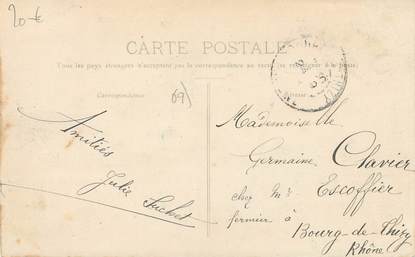 20-€
CARTE POSTALE
Tous les pays étrangers n'acceptent pas la correspondance au recto (se renseigner à la poste)
Correspondance
69)
Amitiés
Julie
Suchet
Mademoiselle
Germaine Clavier
chez Mr Escoffier
fermier à
Bourg-de-Thizy
Rhône